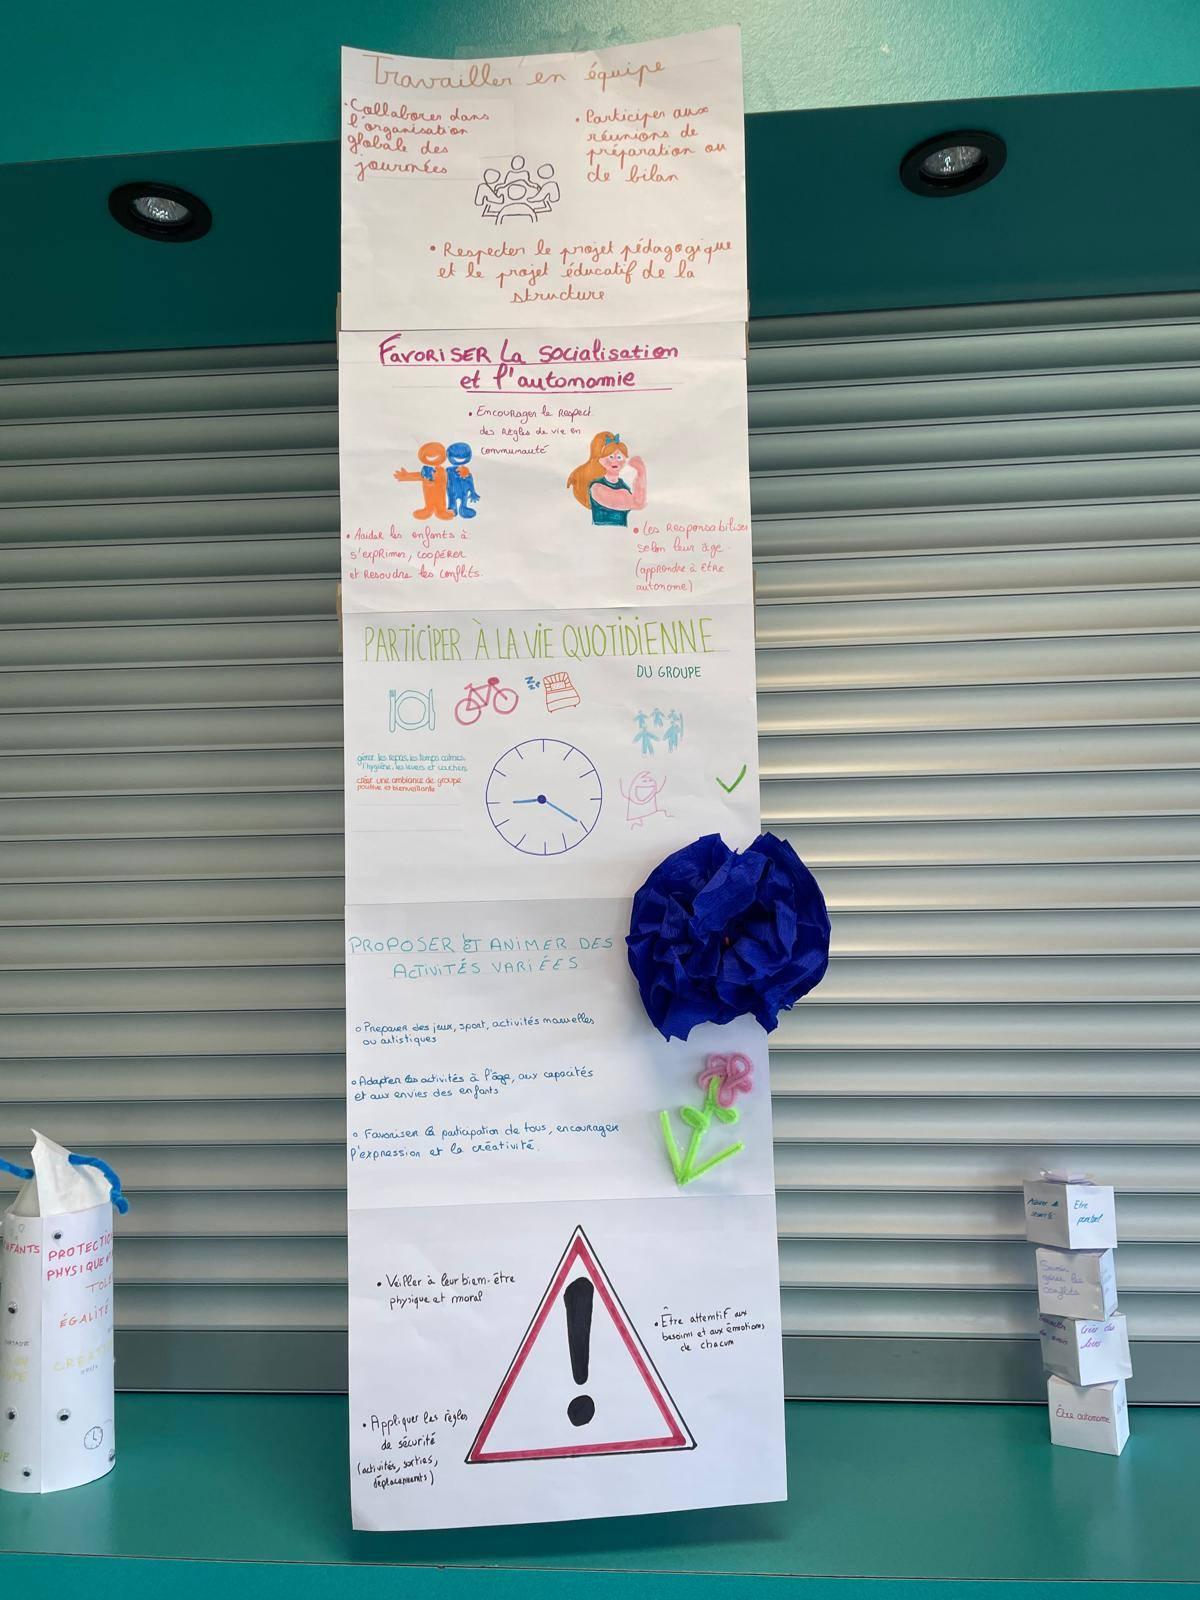 Travailler en équipe
• Collaborer dans
l'organisation
globale des
journées
• Participer aux
réunions de
préparation ou
de bilan
• Respecter le projet pédagogique
et le projet éducatif de la
structure
FAVORISER la socialisation
et l'autonomie
• Encourager le respect
des règles de vie en
communauté
• Aider les enfants à
s'exprimer, coopérer
et resoudre les conflits.
• Les responsabiliser
selon leur âge.
(apprendre à être
autonome)
PARTICIPER À LA VIE QUOTIDIENNE
DU GROUPE
gérer les repas, les temps calmes,
l'hygiène, les levers et couchers
créer une ambiance de groupe
positive et bienveillante
PROPOSER ET ANIMER DES
ACTIVITÉS VARIÉES
° Préparer des jeux, sport, activités manuelles
ou artistiques
° Adapter les activités à l'âge, aux capacités
et aux envies des enfants
° Favoriser la participation de tous, encourager
l'expression et la créativité.
• Veiller à leur bien-être
physique et moral
• Être attentif aux
besoins et aux émotions
de chacun
• Appliquer les règles
de sécurité
(activités, sorties,
déplacements)
PROTECTION
PHYSIQUE
ÉGALITÉ
Etre
ponctuel
Savoir
gérer les
conflits
Créer des
liens
Être autonome